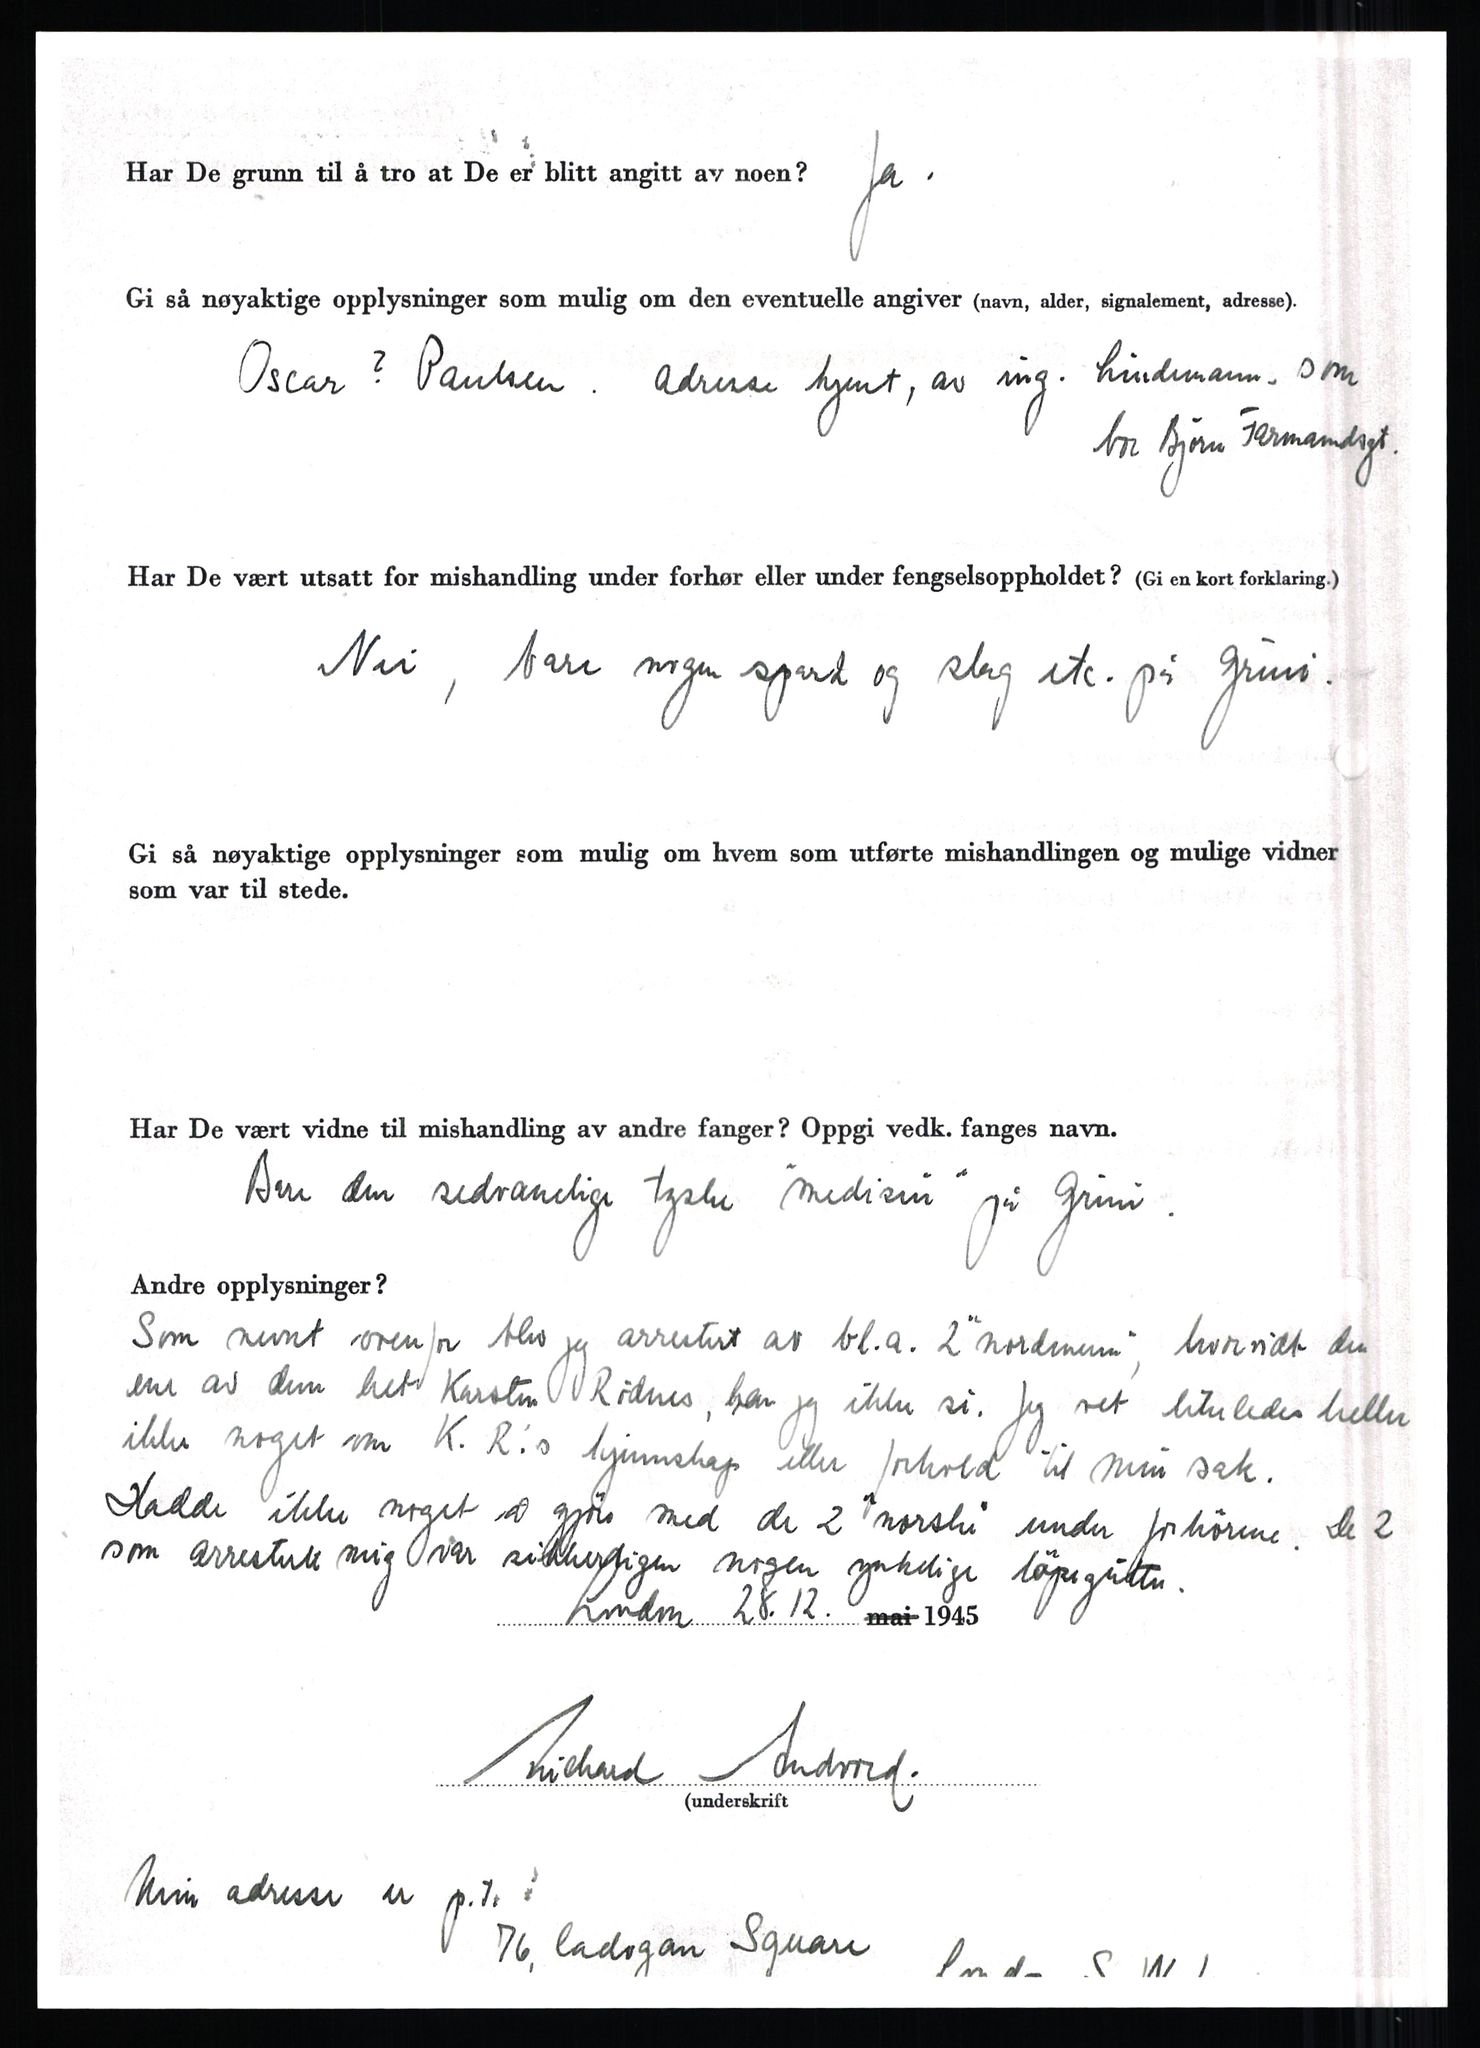 Har De grunn til å tro at De er blitt angitt av noen? Ja.
Gi så nøyaktige opplysninger som mulig om den eventuelle angiver (navn, alder, signalement, adresse).
Oscar? Paulsen. adresse kjent, av ing. Lindemann. som
bor Bjørn Farmandsgt.
Har De vært utsatt for mishandling under forhør eller under fengselsoppholdet? (Gi en kort forklaring.)
Nei, bare nogen spark og slag etc. på Grini.
Gi så nøyaktige opplysninger som mulig om hvem som utførte mishandlingen og mulige vidner
som var til stede.
Har De vært vidne til mishandling av andre fanger? Oppgi vedk. fanges navn.
Bare den sedvanelige tyske "medisin" på Grini.
Andre opplysninger?
Som nevnt ovenfor blev jeg arrestert av bl.a. 2 "nordmenn", hvorvidt den
ene av dem het Karsten Rødnes, kan jeg ikke si. Jeg vet likeledes heller
ikke noget om K. R.'s kjennskap eller forhold til min sak.
Hadde ikke noget å gjöre med de 2 "norske" under forhörene. De 2
som arresterte mig var sikkerligen nogen ynkelige löpegutter.
London 28.12. mai 1945
Richard Andvord.
(underskrift
Min adresse er p.t.:
76, Cadogan Square
London S.W.1